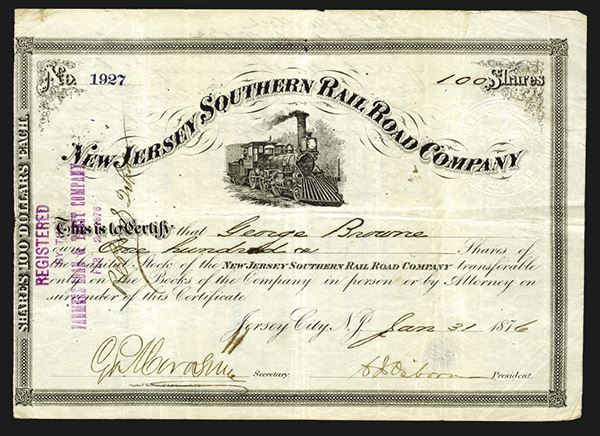 No. 1927
100 Shares
NEW JERSEY SOUTHERN RAIL ROAD COMPANY
This is to Certify that George Browne
owns One hundred Shares of
the Capital Stock of the NEW JERSEY SOUTHERN RAIL ROAD COMPANY transferable
only on the Books of the Company in person or by Attorney on
surrender of this Certificate
Jersey City N.J. Jan 31 1876
Secretary.
President.
SHARES 100 DOLLARS EACH.
REGISTERED
BY THE
FARMERS LOAN & TRUST COMPANY
1876